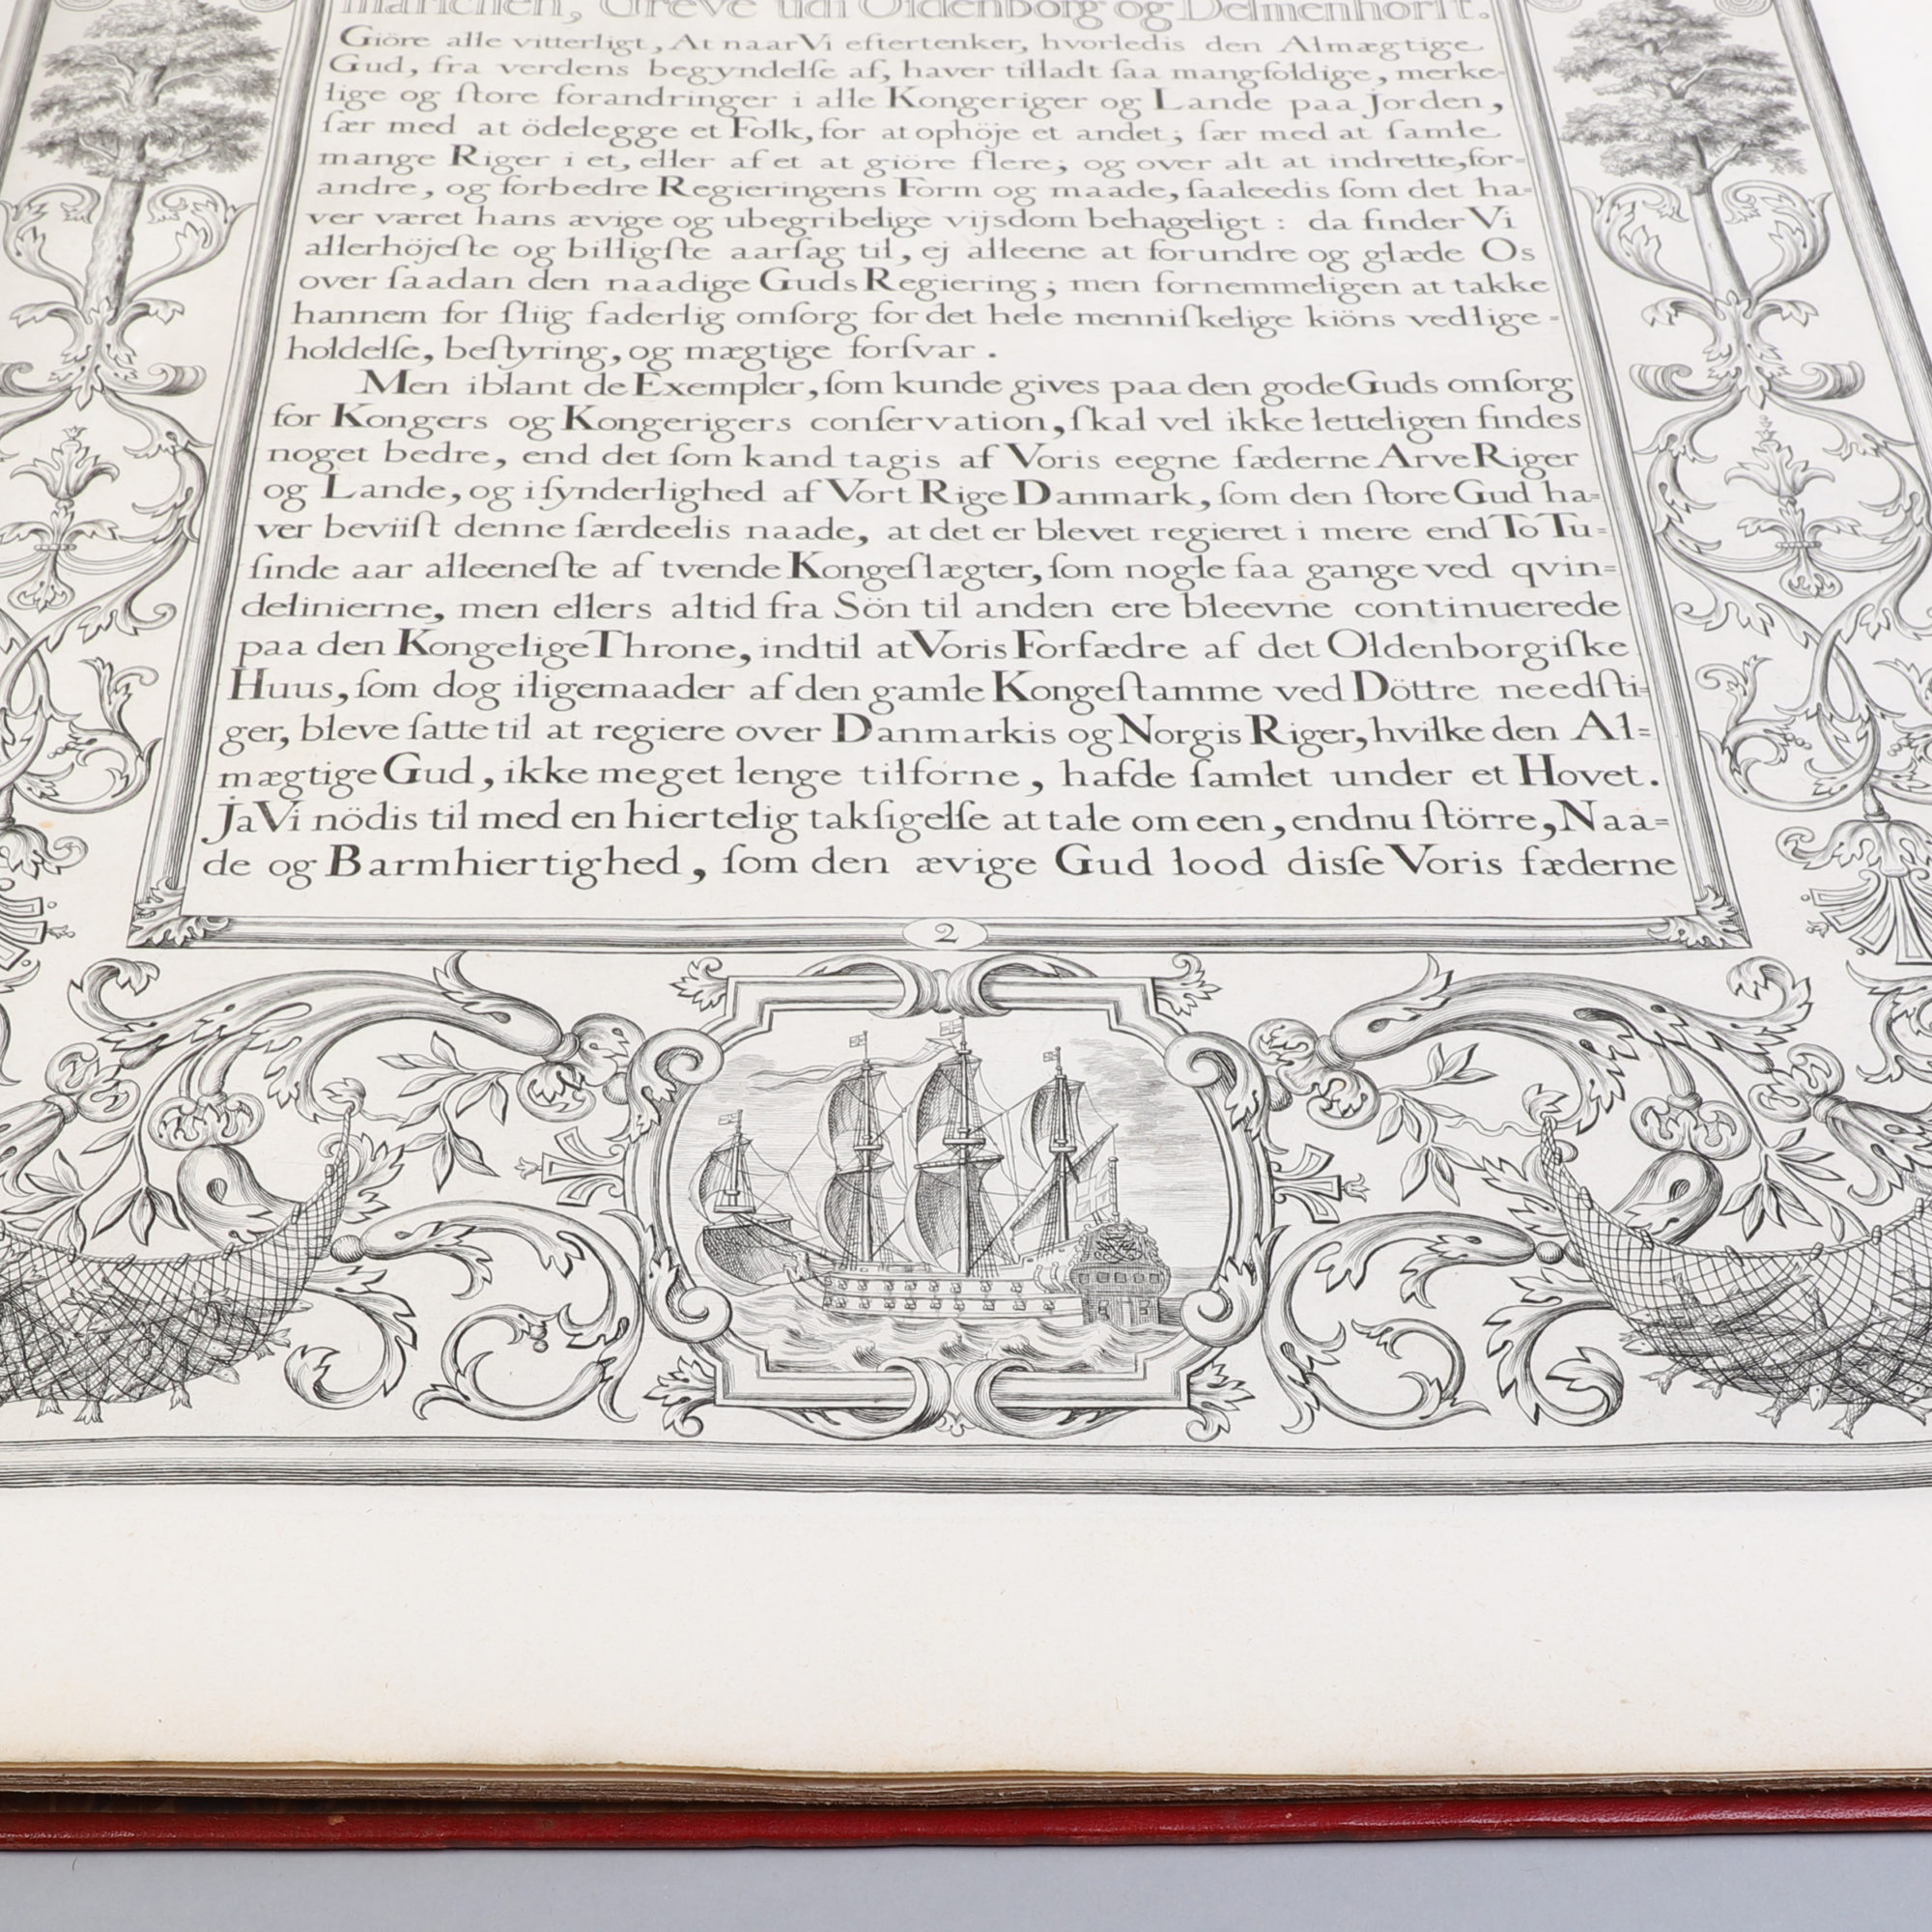 marſchen, Greve udi Oldenborg og Delmenhorſt.
Giöre alle vitterligt, At naar Vi eftertenker, hvorledis den Almægtige
Gud, fra verdens begyndelſe af, haver tilladt ſaa mangfoldige, merke-
lige og ſtore forandringer i alle Kongeriger og Lande paa Jorden,
ſær med at ödelegge et Folk, for at ophöje et andet; ſær med at ſamle
mange Riger i et, eller af et at giöre flere; og over alt at indrette, for-
andre, og forbedre Regieringens Form og maade, ſaaleedis ſom det ha-
ver været hans ævige og ubegribelige vijsdom behageligt: da finder Vi
allerhöjeſte og billigſte aarſag til, ej alleene at forundre og glæde Os
over ſaadan den naadige Guds Regiering; men fornemmeligen at takke
hannem for ſliig faderlig omſorg for det hele menniſkelige kiöns vedlige-
holdelſe, beſtyring, og mægtige forſvar.
Men iblant de Exempler, ſom kunde gives paa den gode Guds omſorg
for Kongers og Kongerigers conſervation, ſkal vel ikke letteligen findes
noget bedre, end det ſom kand tagis af Voris eegne fæderne Arve Riger
og Lande, og i ſynderlighed af Vort Rige Danmark, ſom den ſtore Gud ha=
ver beviiſt denne færdeelis naade, at det er blevet regieret i mere end To Tu=
ſinde aar alleeneſte af tvende Kongeſlægter, ſom nogle faa gange ved qvin=
delinierne, men ellers altid fra Sön til anden ere bleevne continuerede
paa den Kongelige Throne, indtil at Voris Forfædre af det Oldenborgiſke
Huus, ſom dog iligemaader af den gamle Kongeſtamme ved Döttre needſti=
ger, bleve ſatte til at regiere over Danmarkis og Norgis Riger, hvilke den Al=
mægtige Gud, ikke meget lenge tilforne, hafde ſamlet under et Hovet.
Ja Vi nödis til med en hiertelig takſigelſe at tale om een, endnu ſtörre, Naa=
de og Barmhiertighed, ſom den ævige Gud lood disſe Voris fæderne
2